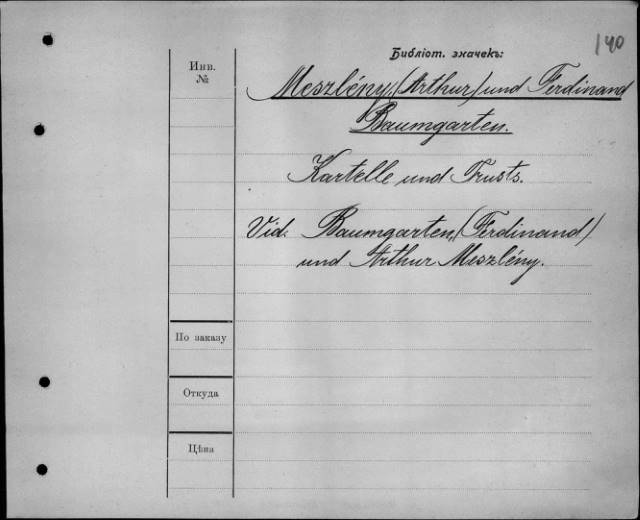 140
Библіот. значекъ:
Инв.
№
Meszlény, (Arthur) und Ferdinand
Baumgarten.
Kartelle und Trusts.
Vid: Baumgarten, (Ferdinand)
und Arthur Meszlény.
По заказу
Откуда
Цѣна